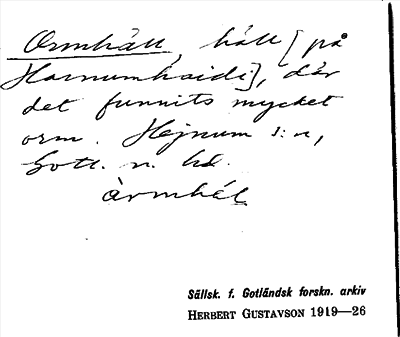 Ormhäll, häll [på
Hornumhaidi], där
det funnits mycket
orm. Hejnum s:n,
Gotl. n. hd.
àrmhél
Sällsk. f. Gotländsk forskn. arkiv
HERBERT GUSTAVSON 1919—26